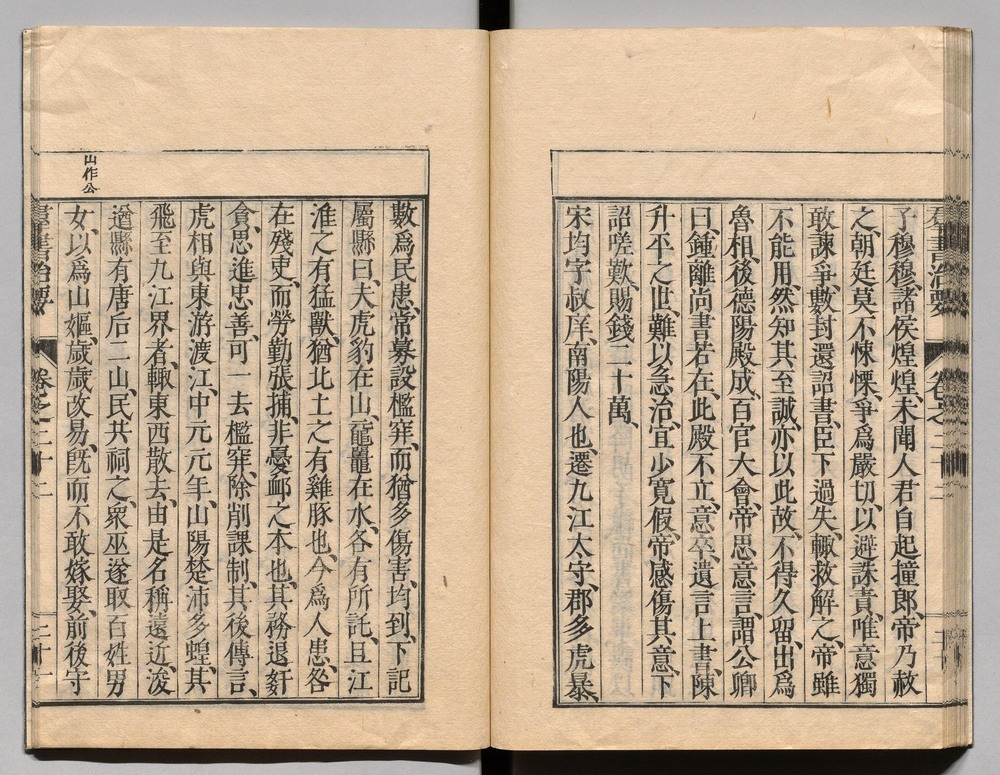 子穆穆、諸侯煌煌、未聞人君自起撞郎、帝乃赦
之、朝廷莫不悚慄、爭爲嚴切、以避誅責、唯意獨
敢諫爭、數封還詔書、臣下過失、輒救解之、帝雖
不能用、然知其至誠、亦以此故、不得久留、出爲
魯相、後德陽殿成、百官大會、帝思意言、謂公卿
曰、鍾離尚書若在、此殿不立、意卒、遺言上書、陳
升平之世、難以急治、宜少寬假、帝感傷其意、下
詔嗟歎、賜錢二十萬、
宋均字叔庠、南陽人也、遷九江太守、郡多虎暴、
羣書治要
卷之二十二
山作公
數爲民患、常募設檻穽、而猶多傷害、均到、下記
屬縣曰、夫虎豹在山、黿鼉在水、各有所託、且江
淮之有猛獸、猶北土之有雞豚也、今爲人患、咎
在殘吏、而勞勤張捕、非憂邮之本也、其務退奸
貪、思進忠善、可一去檻穽、除削課制、其後傳言、
虎相與東游渡江、中元元年、山陽楚沛多蝗、其
飛至九江界者、輒東西散去、由是名稱遠近、浚
遒縣有唐后二山、民共祠之、衆巫遂取百姓男
女、以爲山嫗、歲歲改易、旣而不敢嫁娶、前後守
羣書治要
卷之二十二
二十一